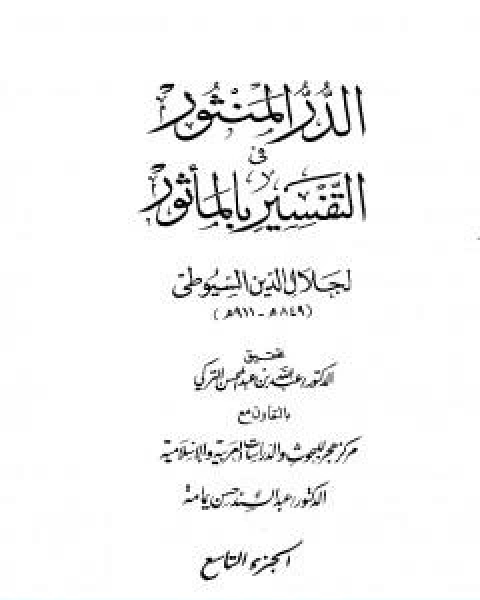 الدُّرُّ المَنْثُور
في
التَّفْسِير بالمأثور
لجلال الدين السّيوطي
(٨٤٩هـ - ٩١١هـ)
تحقيق
الدكتور عبد الله بن عبد المحسن التركي
بالتعاون مع
مركز هجر للبحوث والدراسات العربية والإسلامية
الدكتور عبد السند حسن يمامة
الجزء التاسع